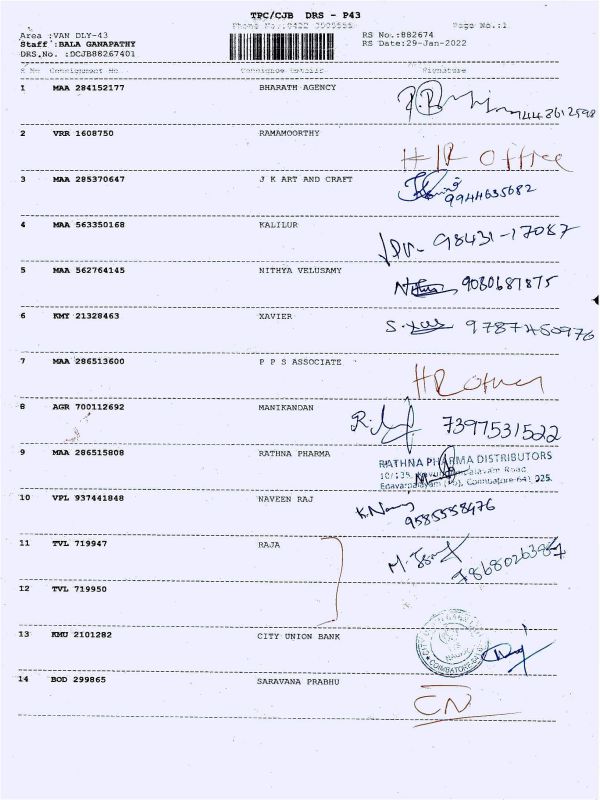 TPC/CJB DRS - P43
Page No.:1
Area :VAN DLY-43
RS No.:882674
Staff :BALA GANAPATHY
RS Date:29-Jan-2022
DRS.No. :DCJB88267401
S No Consignment No. Consignee Details Signature
1 MAA 284152177 BHARATH AGENCY
2 VRR 1608750 RAMAMOORTHY H/R Office
3 MAA 285370647 J K ART AND CRAFT
9944635682
4 MAA 563350168 KALILUR 98431-17087
5 MAA 562764145 NITHYA VELUSAMY 9080687875
6 KMY 21328463 XAVIER 9787450976
7 MAA 286513600 P P S ASSOCIATE
8 AGR 700112692 MANIKANDAN 7397531522
9 MAA 286515808 RATHNA PHARMA RATHNA PHARMA DISTRIBUTORS
Road,
Coimbatore-641 025.
10 VPL 937441848 NAVEEN RAJ
9585558476
11 TVL 719947 RAJA
12 TVL 719950
13 KMU 2101282 CITY UNION BANK
14 BOD 299865 SARAVANA PRABHU
CN